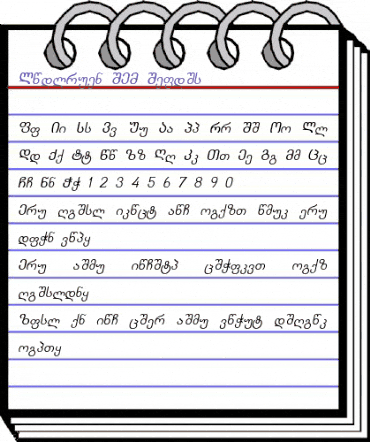 ლწდლრუენ შემ შეფდშს
ფფ იი სს ვვ უუ აა პპ რრ შშ ოო ლლ
დდ ქქ ტტ წწ ზზ ღღ კკ თთ ეე გგ მმ ცც
ჩჩ ნნ ჭჭ 1 2 3 4 5 6 7 8 9 0
ერუ ღგშსლ იკნცტ აწჩ ოგქზთ წმუკ ერუ
დფჭნ ვწპყ
ერუ აშმუ იწჩშტპ ცშჭფკვთ ოგქზ
ღგშსლდნყ
ზფსლ ქნ იწჩ ცშერ აშმუ ვნჭუტ დშღგწკ
ოგპთყ